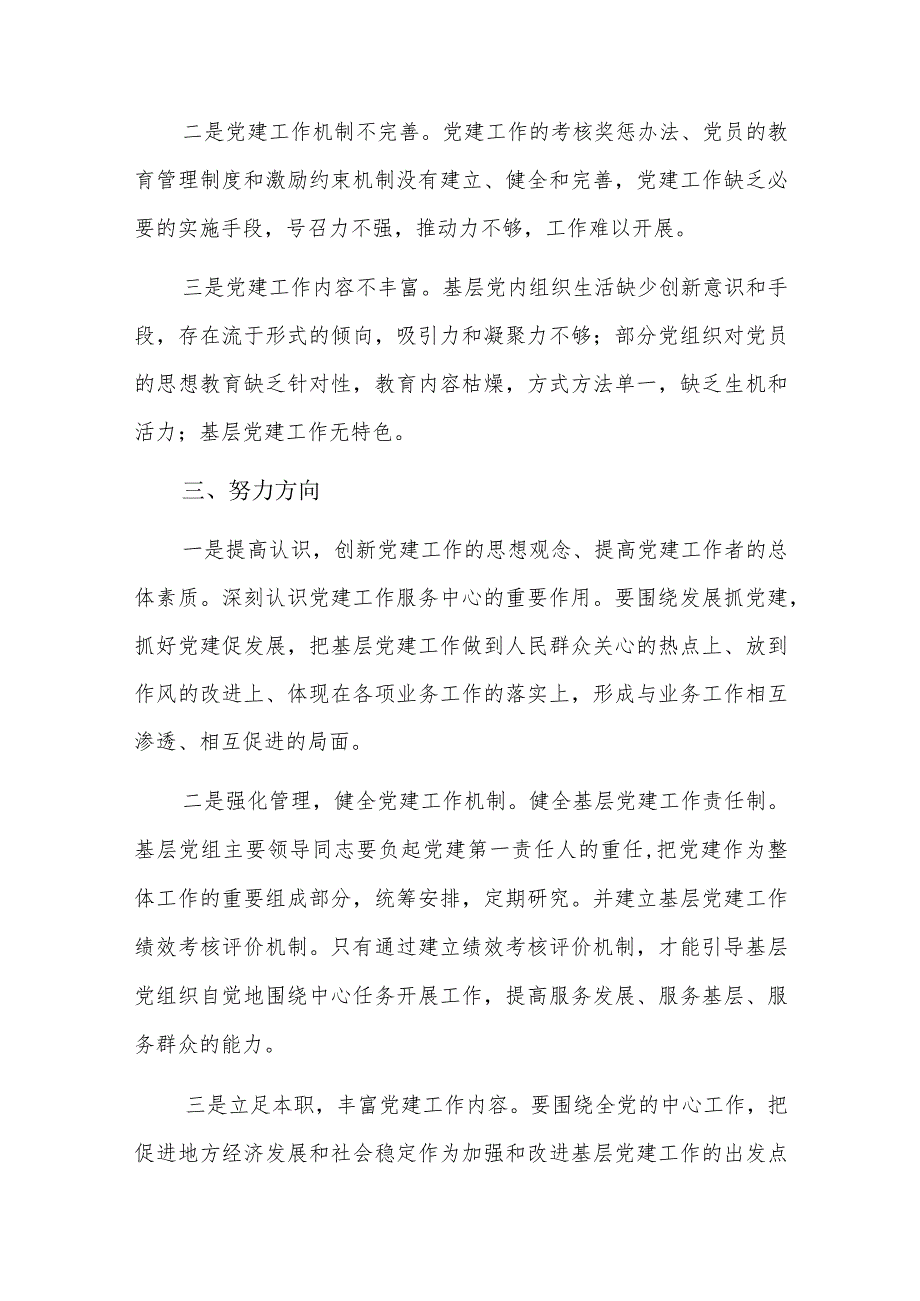 二是党建工作机制不完善。党建工作的考核奖惩办法、党员的教
育管理制度和激励约束机制没有建立、健全和完善，党建工作缺乏必
要的实施手段，号召力不强，推动力不够，工作难以开展。
三是党建工作内容不丰富。基层党内组织生活缺少创新意识和手
段，存在流于形式的倾向，吸引力和凝聚力不够；部分党组织对党员
的思想教育缺乏针对性，教育内容枯燥，方式方法单一，缺乏生机和
活力；基层党建工作无特色。
三、努力方向
一是提高认识，创新党建工作的思想观念、提高党建工作者的总
体素质。深刻认识党建工作服务中心的重要作用。要围绕发展抓党建，
抓好党建促发展，把基层党建工作做到人民群众关心的热点上、放到
作风的改进上、体现在各项业务工作的落实上，形成与业务工作相互
渗透、相互促进的局面。
二是强化管理，健全党建工作机制。健全基层党建工作责任制。
基层党组主要领导同志要负起党建第一责任人的重任,把党建作为整
体工作的重要组成部分，统筹安排，定期研究。并建立基层党建工作
绩效考核评价机制。只有通过建立绩效考核评价机制，才能引导基层
党组织自觉地围绕中心任务开展工作，提高服务发展、服务基层、服
务群众的能力。
三是立足本职，丰富党建工作内容。要围绕全党的中心工作，把
促进地方经济发展和社会稳定作为加强和改进基层党建工作的出发点